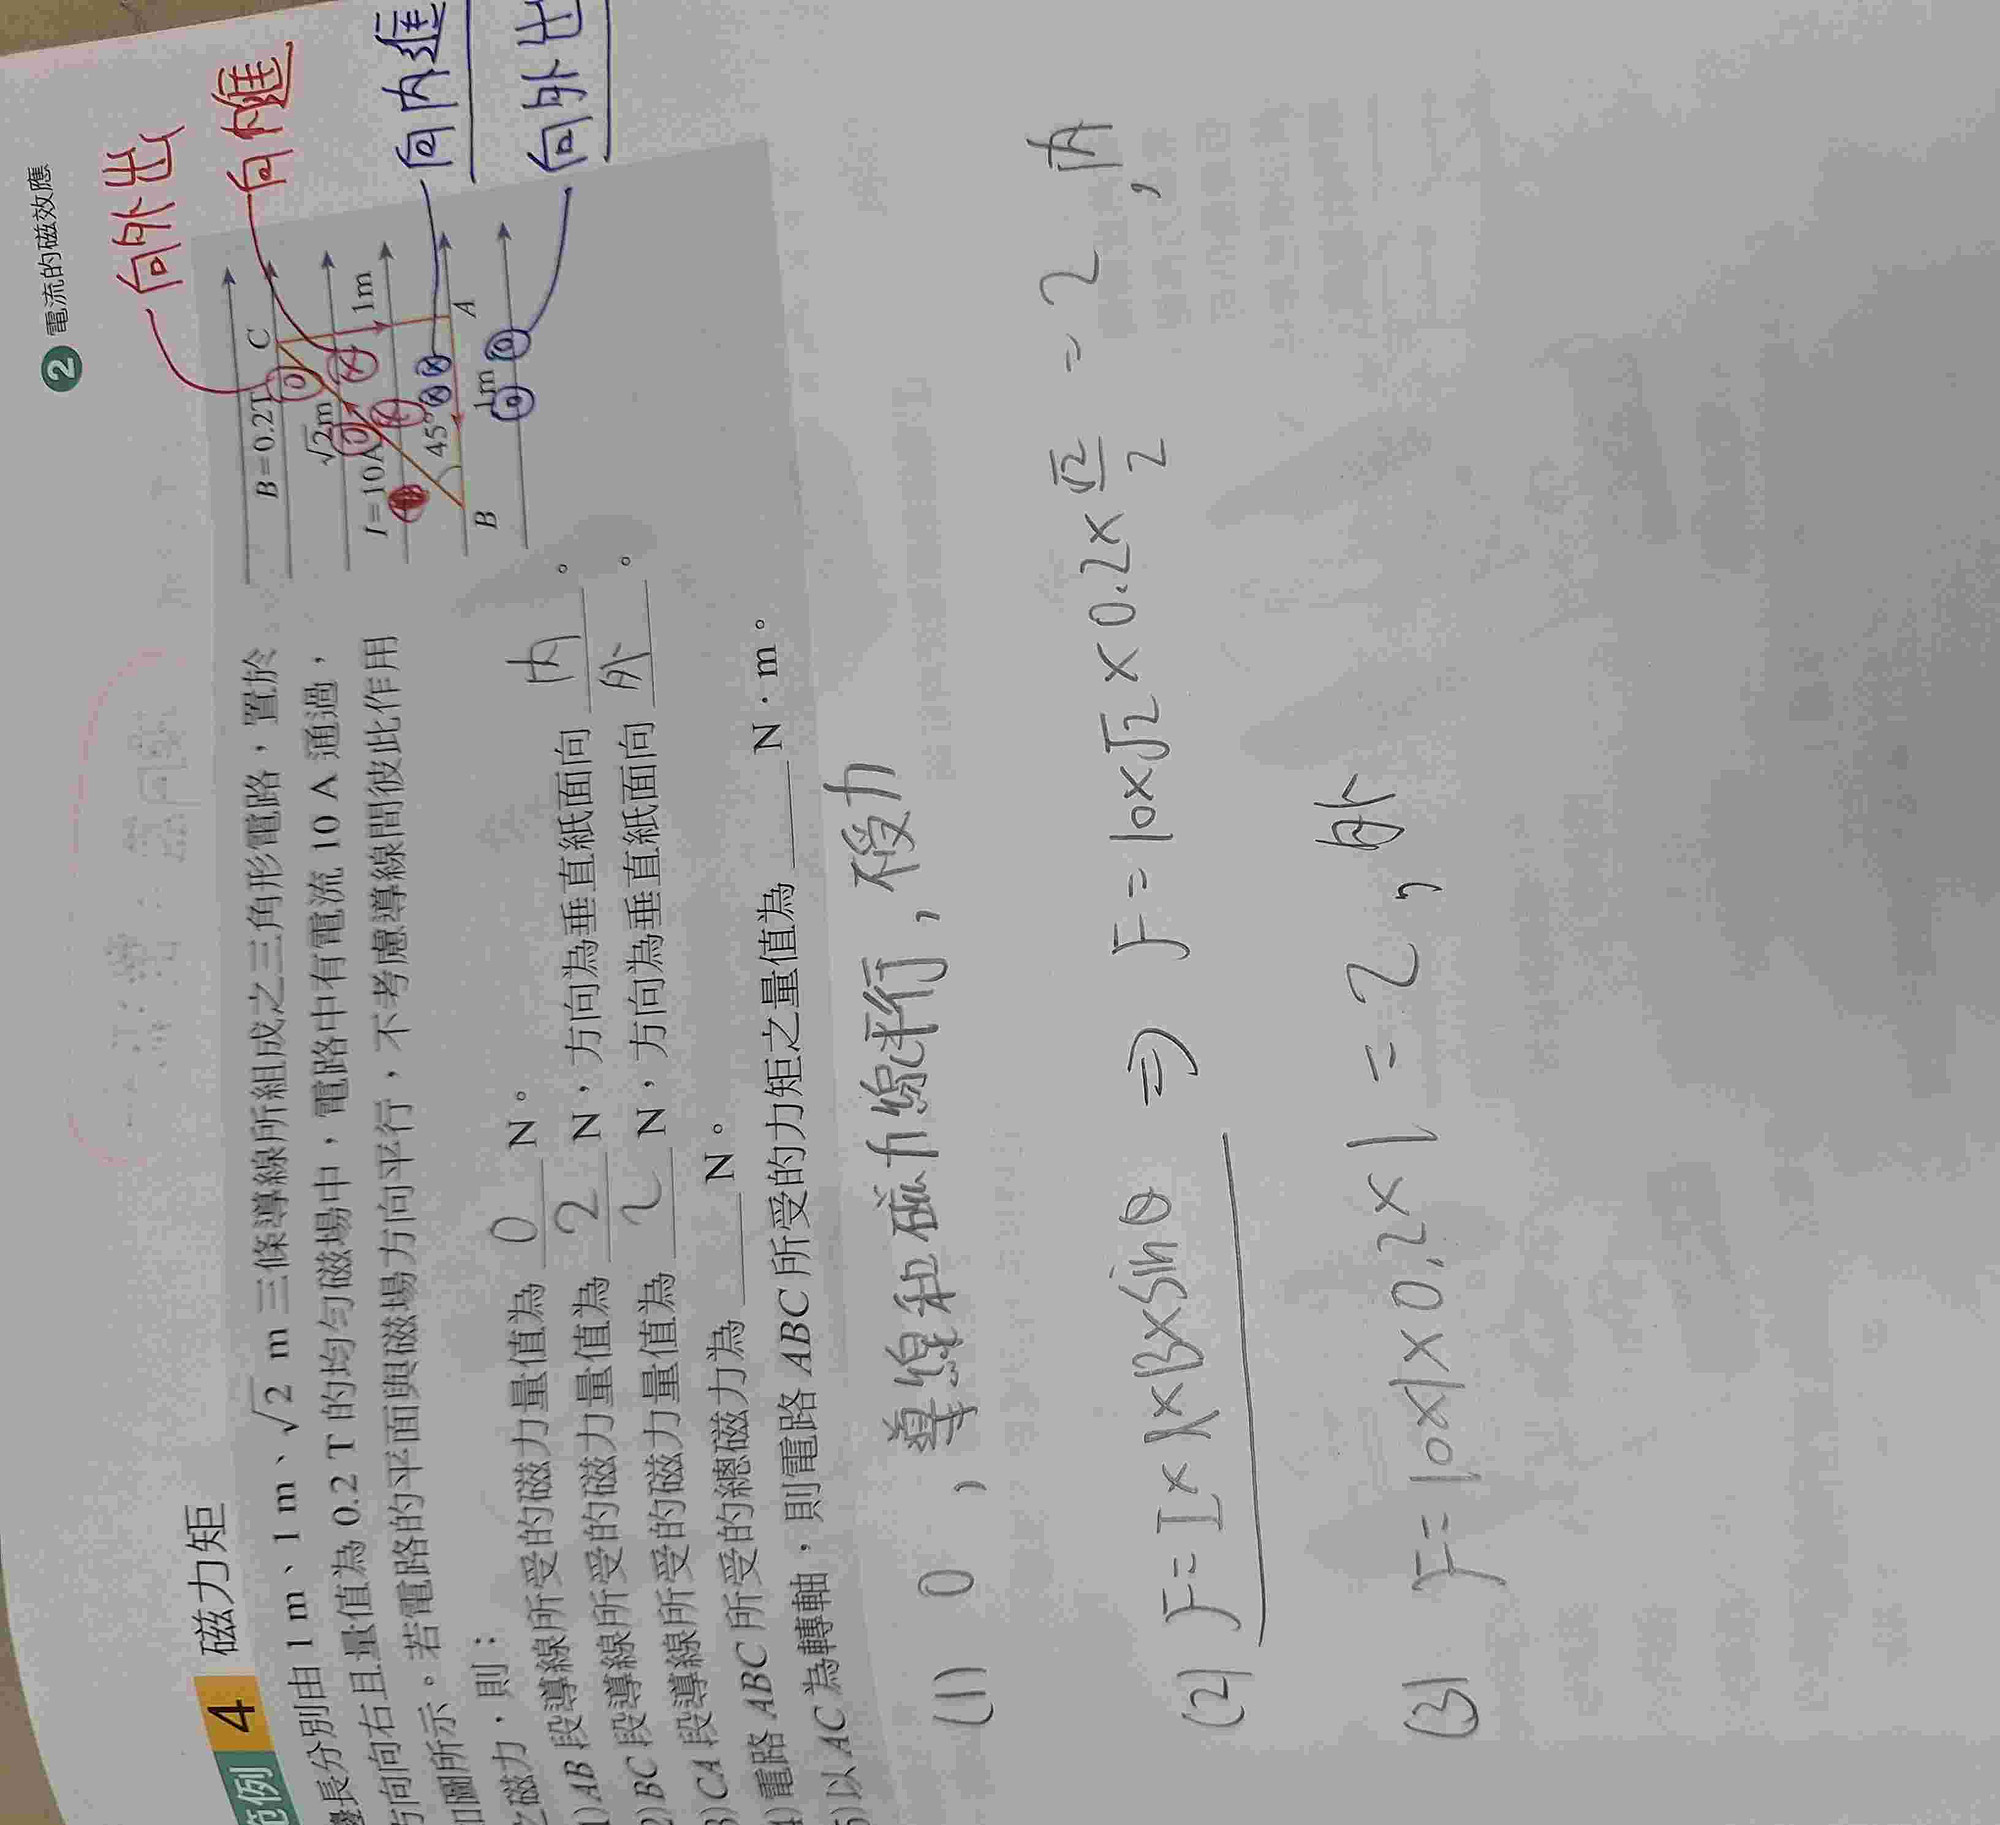 2 電流的磁效應
範例 4 磁力矩
邊長分別由 1 m、1 m、√2 m 三條導線所組成之三角形電路，置於
方向向右且量值為 0.2 T 的均勻磁場中，電路中有電流 10 A 通過，
如圖所示。若電路的平面與磁場方向平行，不考慮導線間彼此作用
之磁力，則：
(1) AB 段導線所受的磁力量值為 0 N。
(2) BC 段導線所受的磁力量值為 2 N，方向為垂直紙面向 內 。
(3) CA 段導線所受的磁力量值為 2 N，方向為垂直紙面向 外 。
(4) 電路 ABC 所受的總磁力為 N。
(5) 以 AC 為轉軸，則電路 ABC 所受的力矩之量值為 N·m。
B=0.2T C
√2m
I=10A
1m
45°
B
1m
A
向外出
向內進
向外出
(1) 0 , 導線和磁力線平行, 不受力
(2) F=I×l×B×sinθ ⇒ F=10×√2×0.2×√2/2 = 2 , 內
(3) F=10×1×0.2×1 = 2 , 外